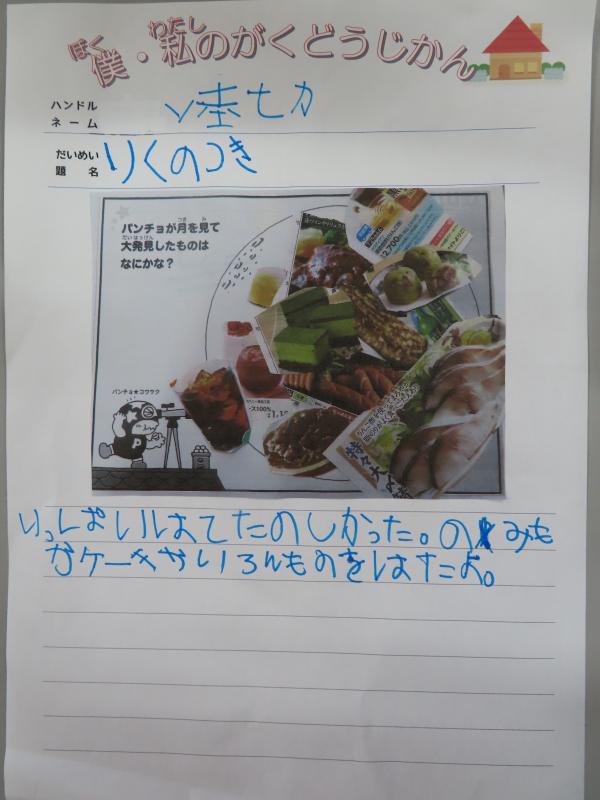 ぼく わたし
僕・私のがくどうじかん
ハンドル
ネーム
だいめい
題名 りくのつき
パンチョが月を見て
つき み
大発見したものは
だいはっけん
なにかな?
パンチョ★コウサク
P
2,700
ース100%
特々大
いっしばいはてたのしかった。のみも
がケーキやいろんものをはたよ。